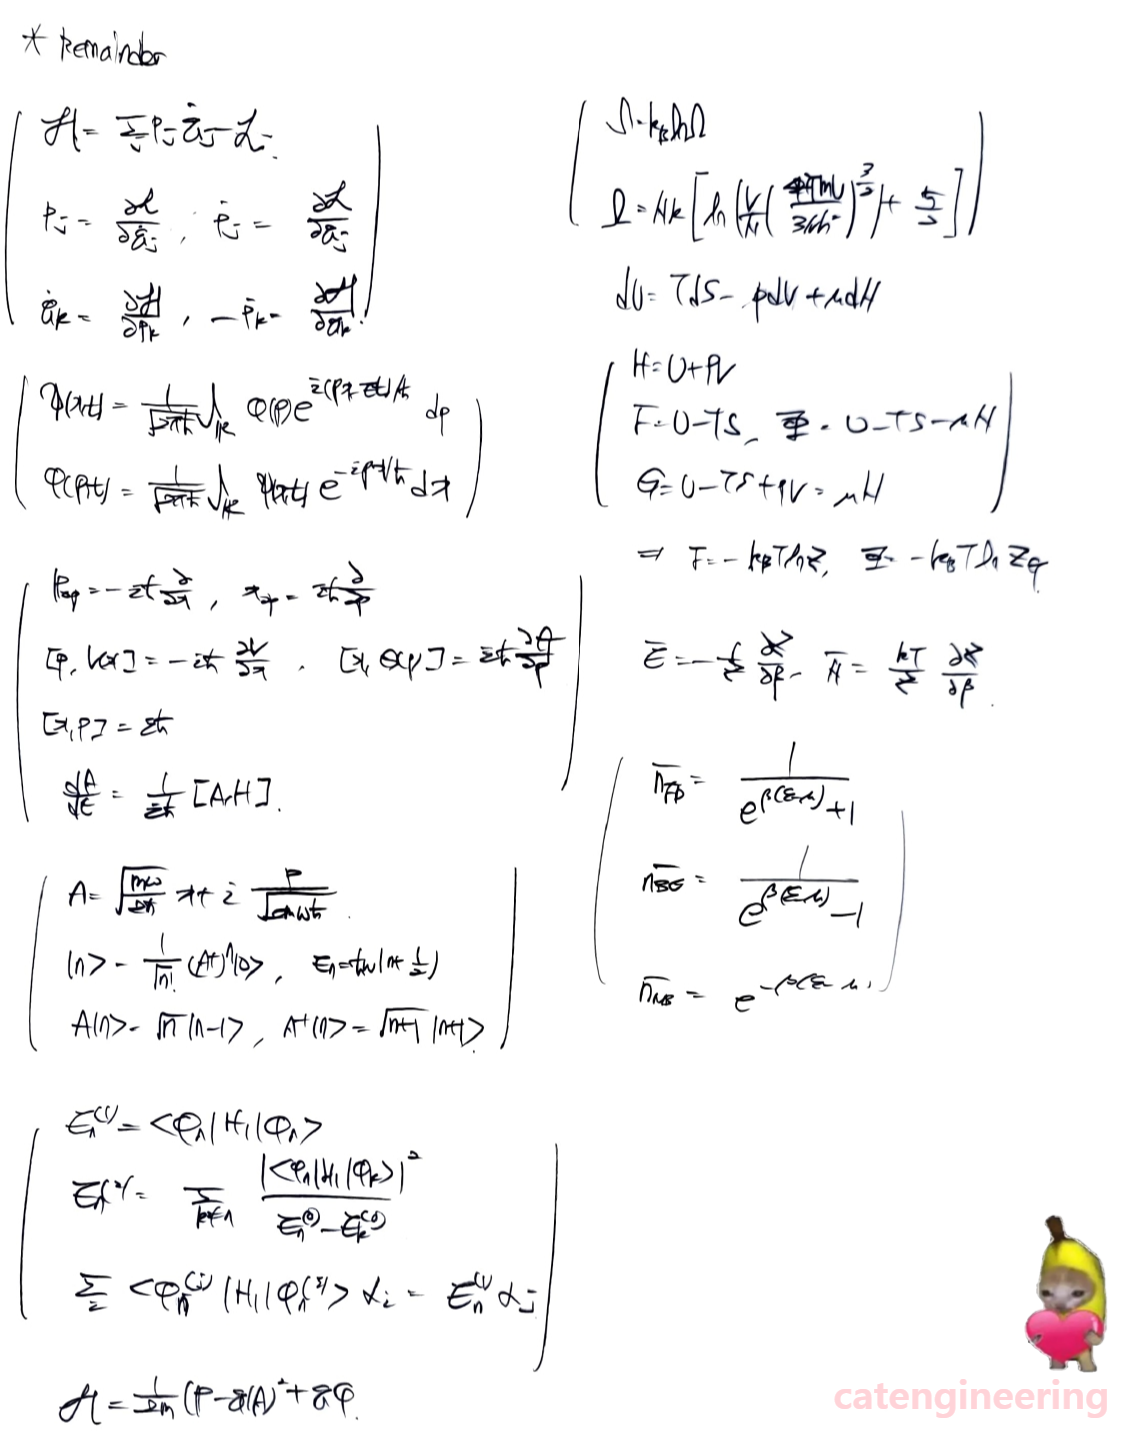 * Remainder
ℋ = Σ_j P_j q̇_j − ℒ.
P_j = ∂ℒ/∂q̇_j , Ṗ_j = ∂ℒ/∂q_j
q̇_k = ∂ℋ/∂P_k , −Ṗ_k = ∂ℋ/∂q_k .
ψ(x,t) = 1/√(2πħ) ∫_ℝ φ(p) e^{i(px−Et)/ħ} dp
φ(p,t) = 1/√(2πħ) ∫_ℝ ψ(x,t) e^{−ipx/ħ} dx
P_op = −iħ ∂/∂x , x_op = iħ ∂/∂p
[p, V(x)] = −iħ ∂V/∂x , [x, Q(p)] = iħ ∂Q/∂p
[x,p] = iħ
dA/dt = 1/iħ [A,H].
A = √(mω/2ħ) x + i p/√(2mωħ) .
|n> = 1/√n! (A†)^n |0> , E_n = ħω(n+1/2)
A|n> = √n |n−1> , A†|n> = √(n+1) |n+1>
E_n^(1) = <φ_n|H_1|φ_n>
E_n^(2) = Σ_{k≠n} |<φ_n|H_1|φ_k>|² / (E_n^(0) − E_k^(0))
Σ_i <φ_n^(j)|H_1|φ_n^(i)> α_i = E_n^(1) α_j
ℋ = 1/2m (P − qA)² + qφ.
S = k_B ln Ω
S = Nk [ln(V/N (4πmU/3Nh²)^{3/2}) + 5/2]
dU = TdS − pdV + μdN
H = U + PV
F = U − TS, Φ = U − TS − μN
G = U − TS + PV = μN
⇒ F = −k_B T ln Z, Φ = −k_B T ln Z_G
Ē = −1/Z ∂Z/∂β , N̄ = kT/Z ∂Z/∂β .
n̄_FD = 1/(e^{β(ε−μ)} + 1)
n̄_BE = 1/(e^{β(ε−μ)} − 1)
n̄_MB = e^{−β(ε−μ)}
catengineering